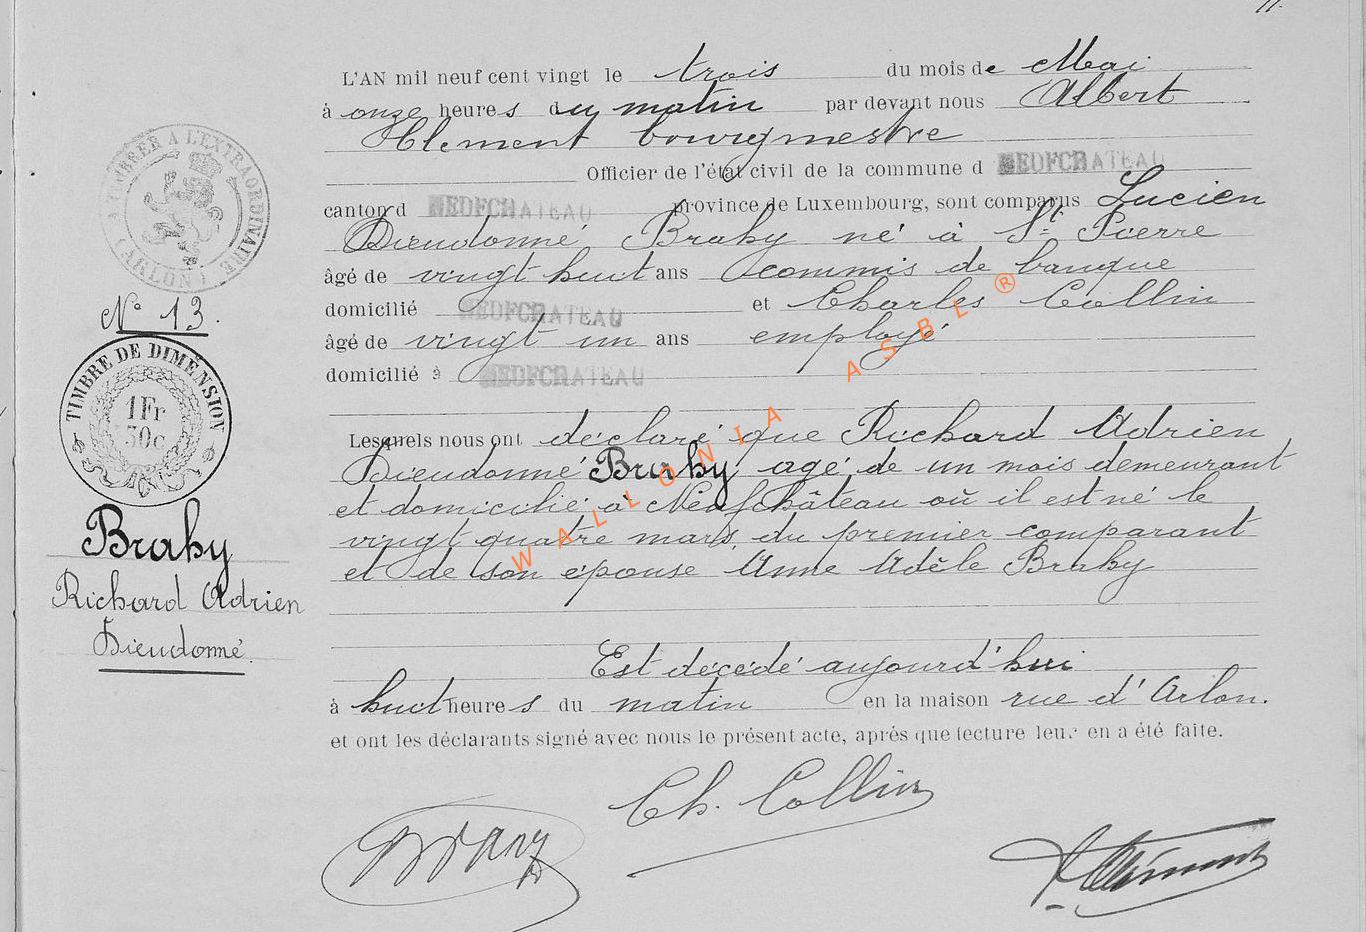 11.
L'AN mil neuf cent vingt le trois du mois de Mai
à onze heures du matin par devant nous Albert
Clément bourgmestre
Officier de l'état civil de la commune d NEUFCHATEAU
canton d NEUFCHATEAU province de Luxembourg, sont comparus Lucien
Dieudonné Brahy né à St. Pierre
âgé de vingt huit ans commis de banque
domicilié NEUFCHATEAU et Charles Collin
âgé de vingt un ans employé
domicilié à NEUFCHATEAU
Lesquels nous ont déclaré que Richard Adrien
Dieudonné Brahy, agé de un mois demeurant
et domicilié à Neufchâteau où il est né le
vingt quatre mars, du premier comparant
et de son épouse Anne Adèle Brahy
Est décédé aujourd'hui
à huit heures du matin en la maison rue d'Arlon.
et ont les déclarants signé avec nous le présent acte, après que lecture leur en a été faite.
Ch. Collin
Brahy
Clément
A TIMBRER A L'EXTRAORDINAIRE
(ARLON)
N° 13.
TIMBRE DE DIMENSION
1Fr
50c
Brahy
Richard Adrien
Dieudonné.
WALLONIA ASBL ®